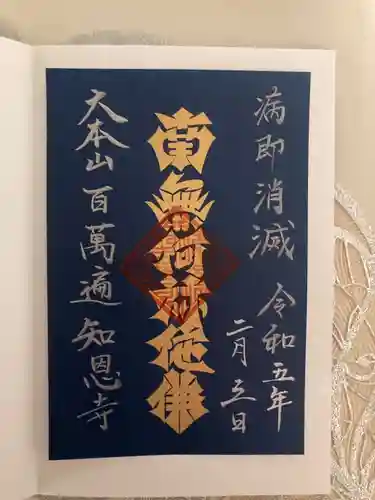 病即消滅 令和五年
二月三日
南無阿弥陀佛
大本山百萬遍知恩寺